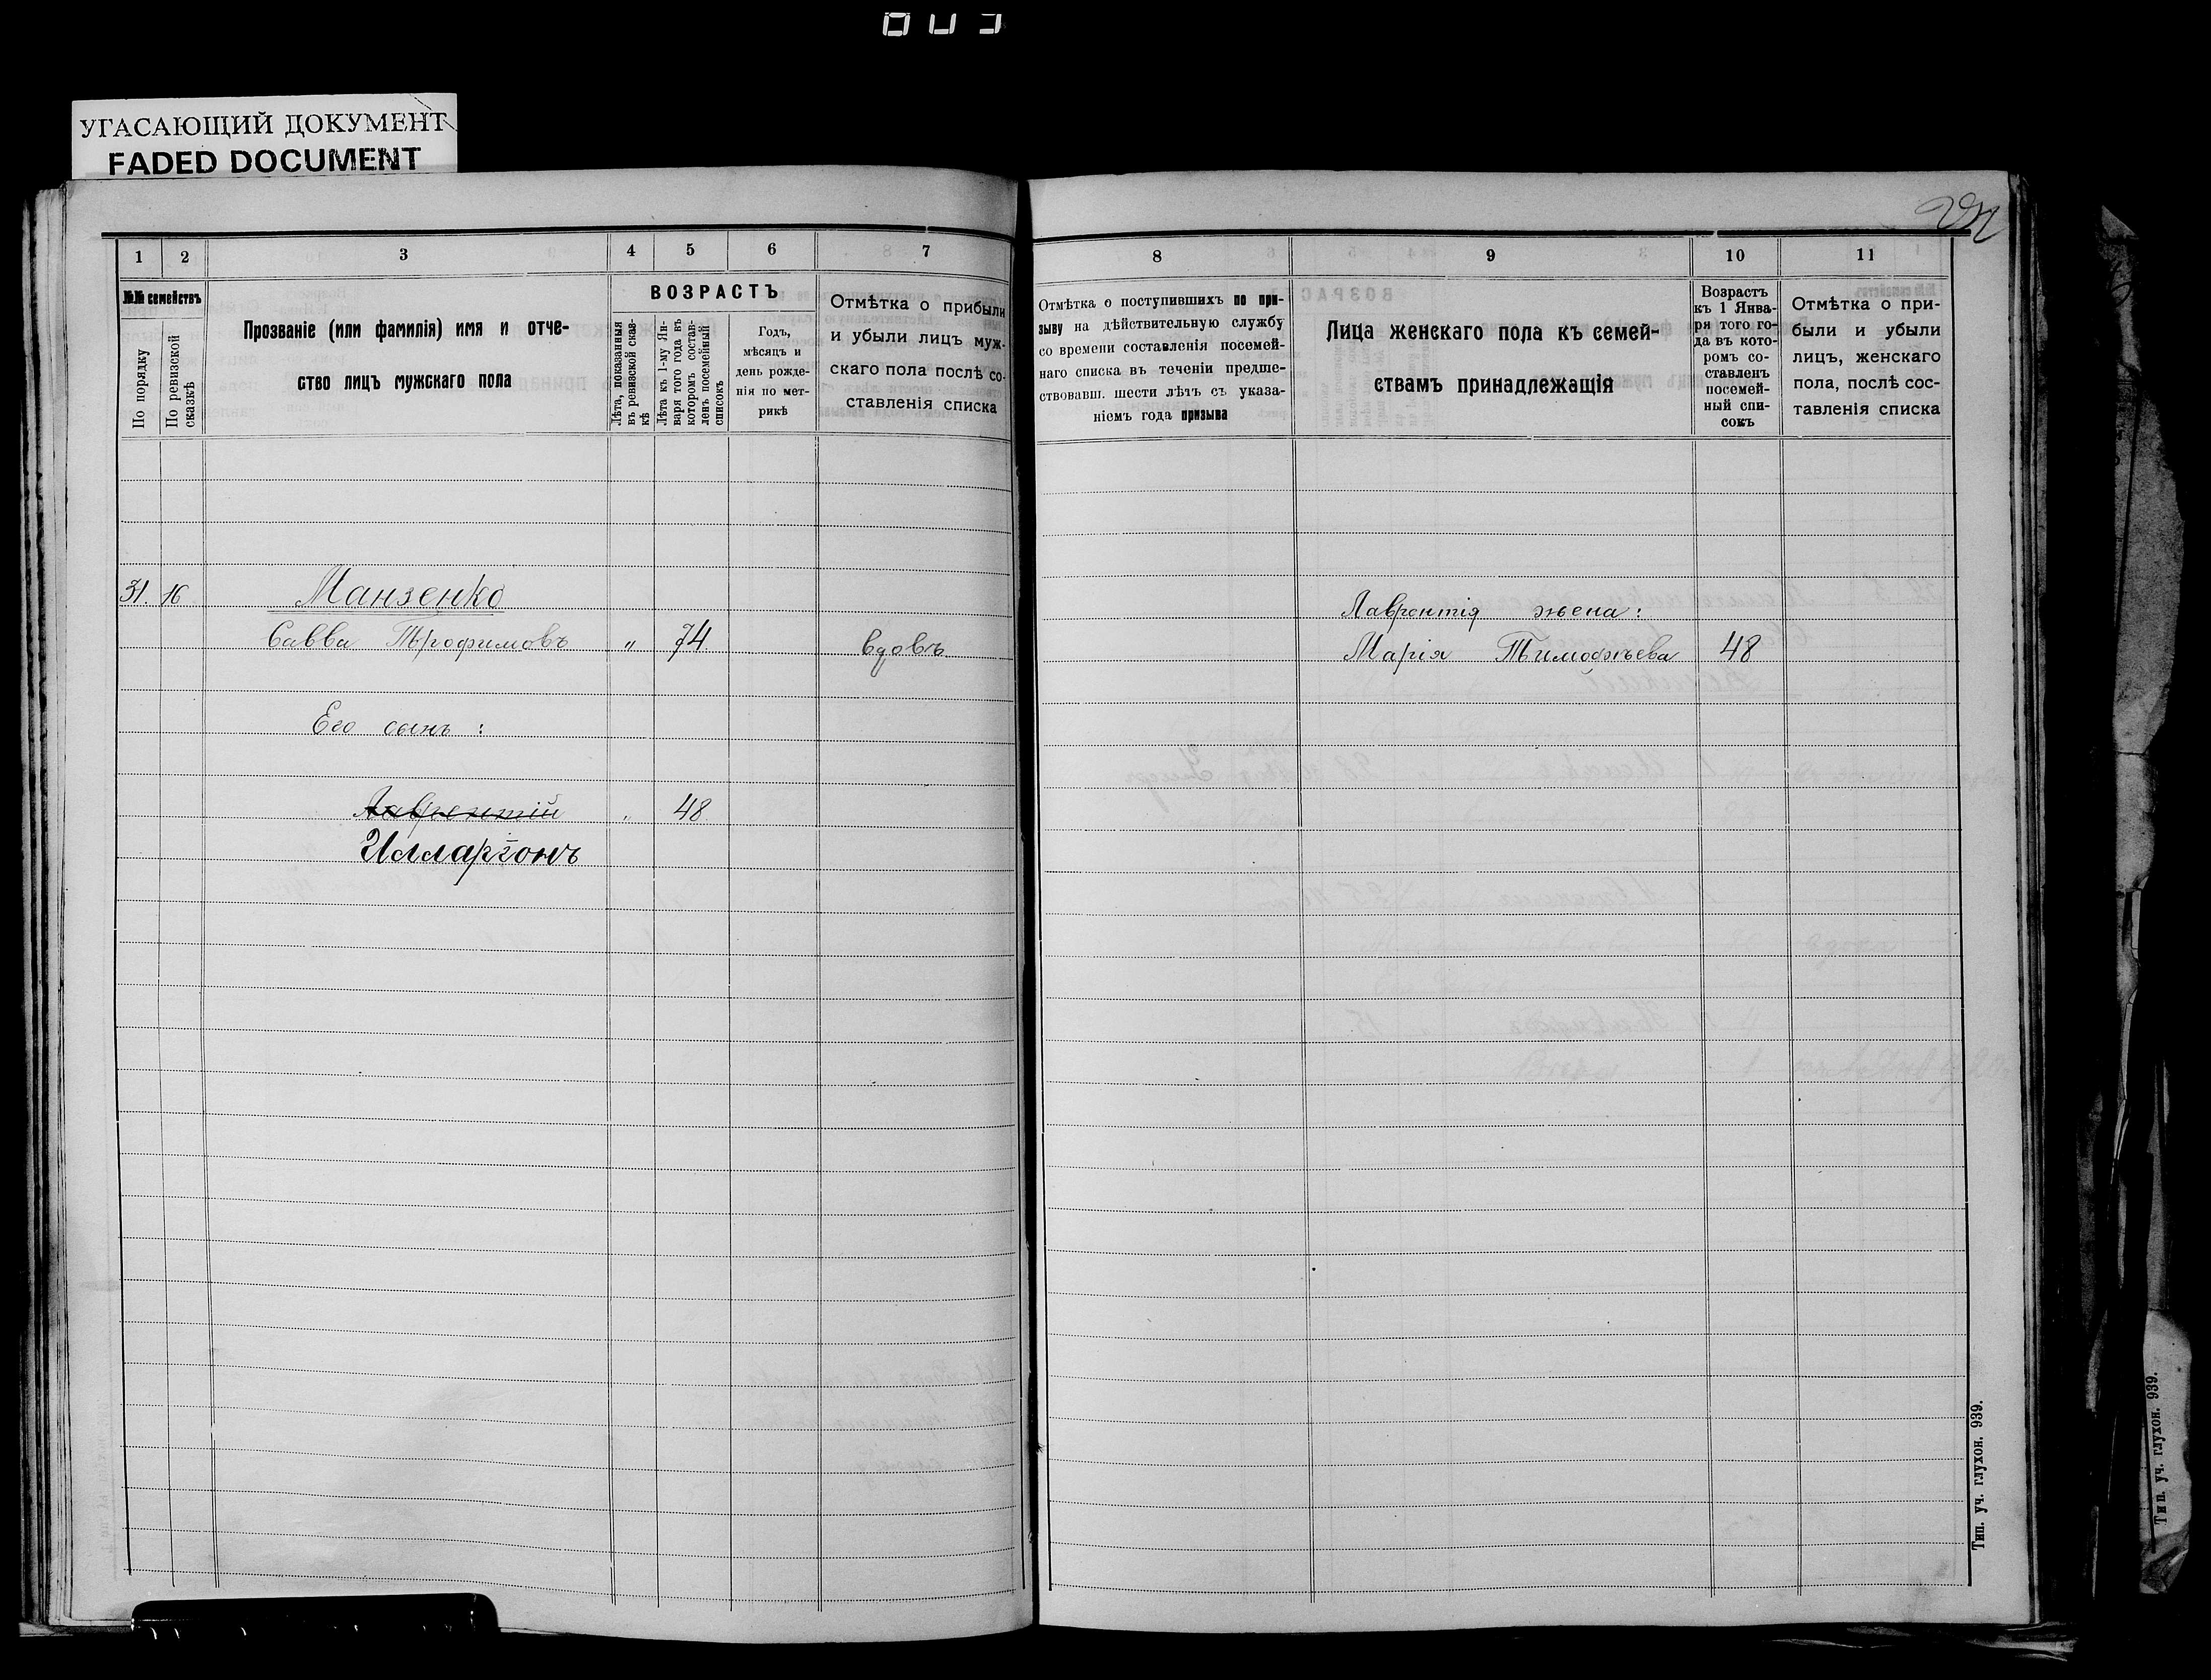 003
УГАСАЮЩИЙ ДОКУМЕНТ
FADED DOCUMENT
1 2 3 4 5 6 7
№№ семействъ
По порядку
По ревизской сказкѣ
Прозваніе (или фамилія) имя и отче-
ство лицъ мужскаго пола
ВОЗРАСТЪ
Лѣта, показанныя
въ ревизской сказ-
кѣ
Лѣта къ 1-му Ян-
варя того года къ
которомъ состав-
ленъ посемейный
списокъ
Годъ,
мѣсяцъ и
день рожде-
нія по мет-
рикѣ
Отмѣтка о прибыли
и убыли лицъ муж-
скаго пола послѣ со-
ставленія списка
31. 16 Манзенко
Савва Трофимовъ „ 74. вдовъ
Его сынъ :
Лаврентій „ 48
Илларіонъ
8 9 10 11
Отмѣтка о поступившихъ по при-
зыву на дѣйствительную службу
со времени составленія посемей-
наго списка въ теченіи предше-
ствовавш. шести лѣтъ съ указа-
ніемъ года призыва
Лица женскаго пола къ семей-
ствамъ принадлежащія
Возрастъ
къ 1 Янва-
ря того го-
да въ кото-
ромъ со-
ставленъ
посемей-
ный спи-
сокъ
Отмѣтка о при-
были и убыли
лицъ, женскаго
пола, послѣ сос-
тавленія списка
Лаврентія жена:
Марія Тимофѣева 48
Тип. уч. глухон. 939.
Тип. уч. глухон. 939.